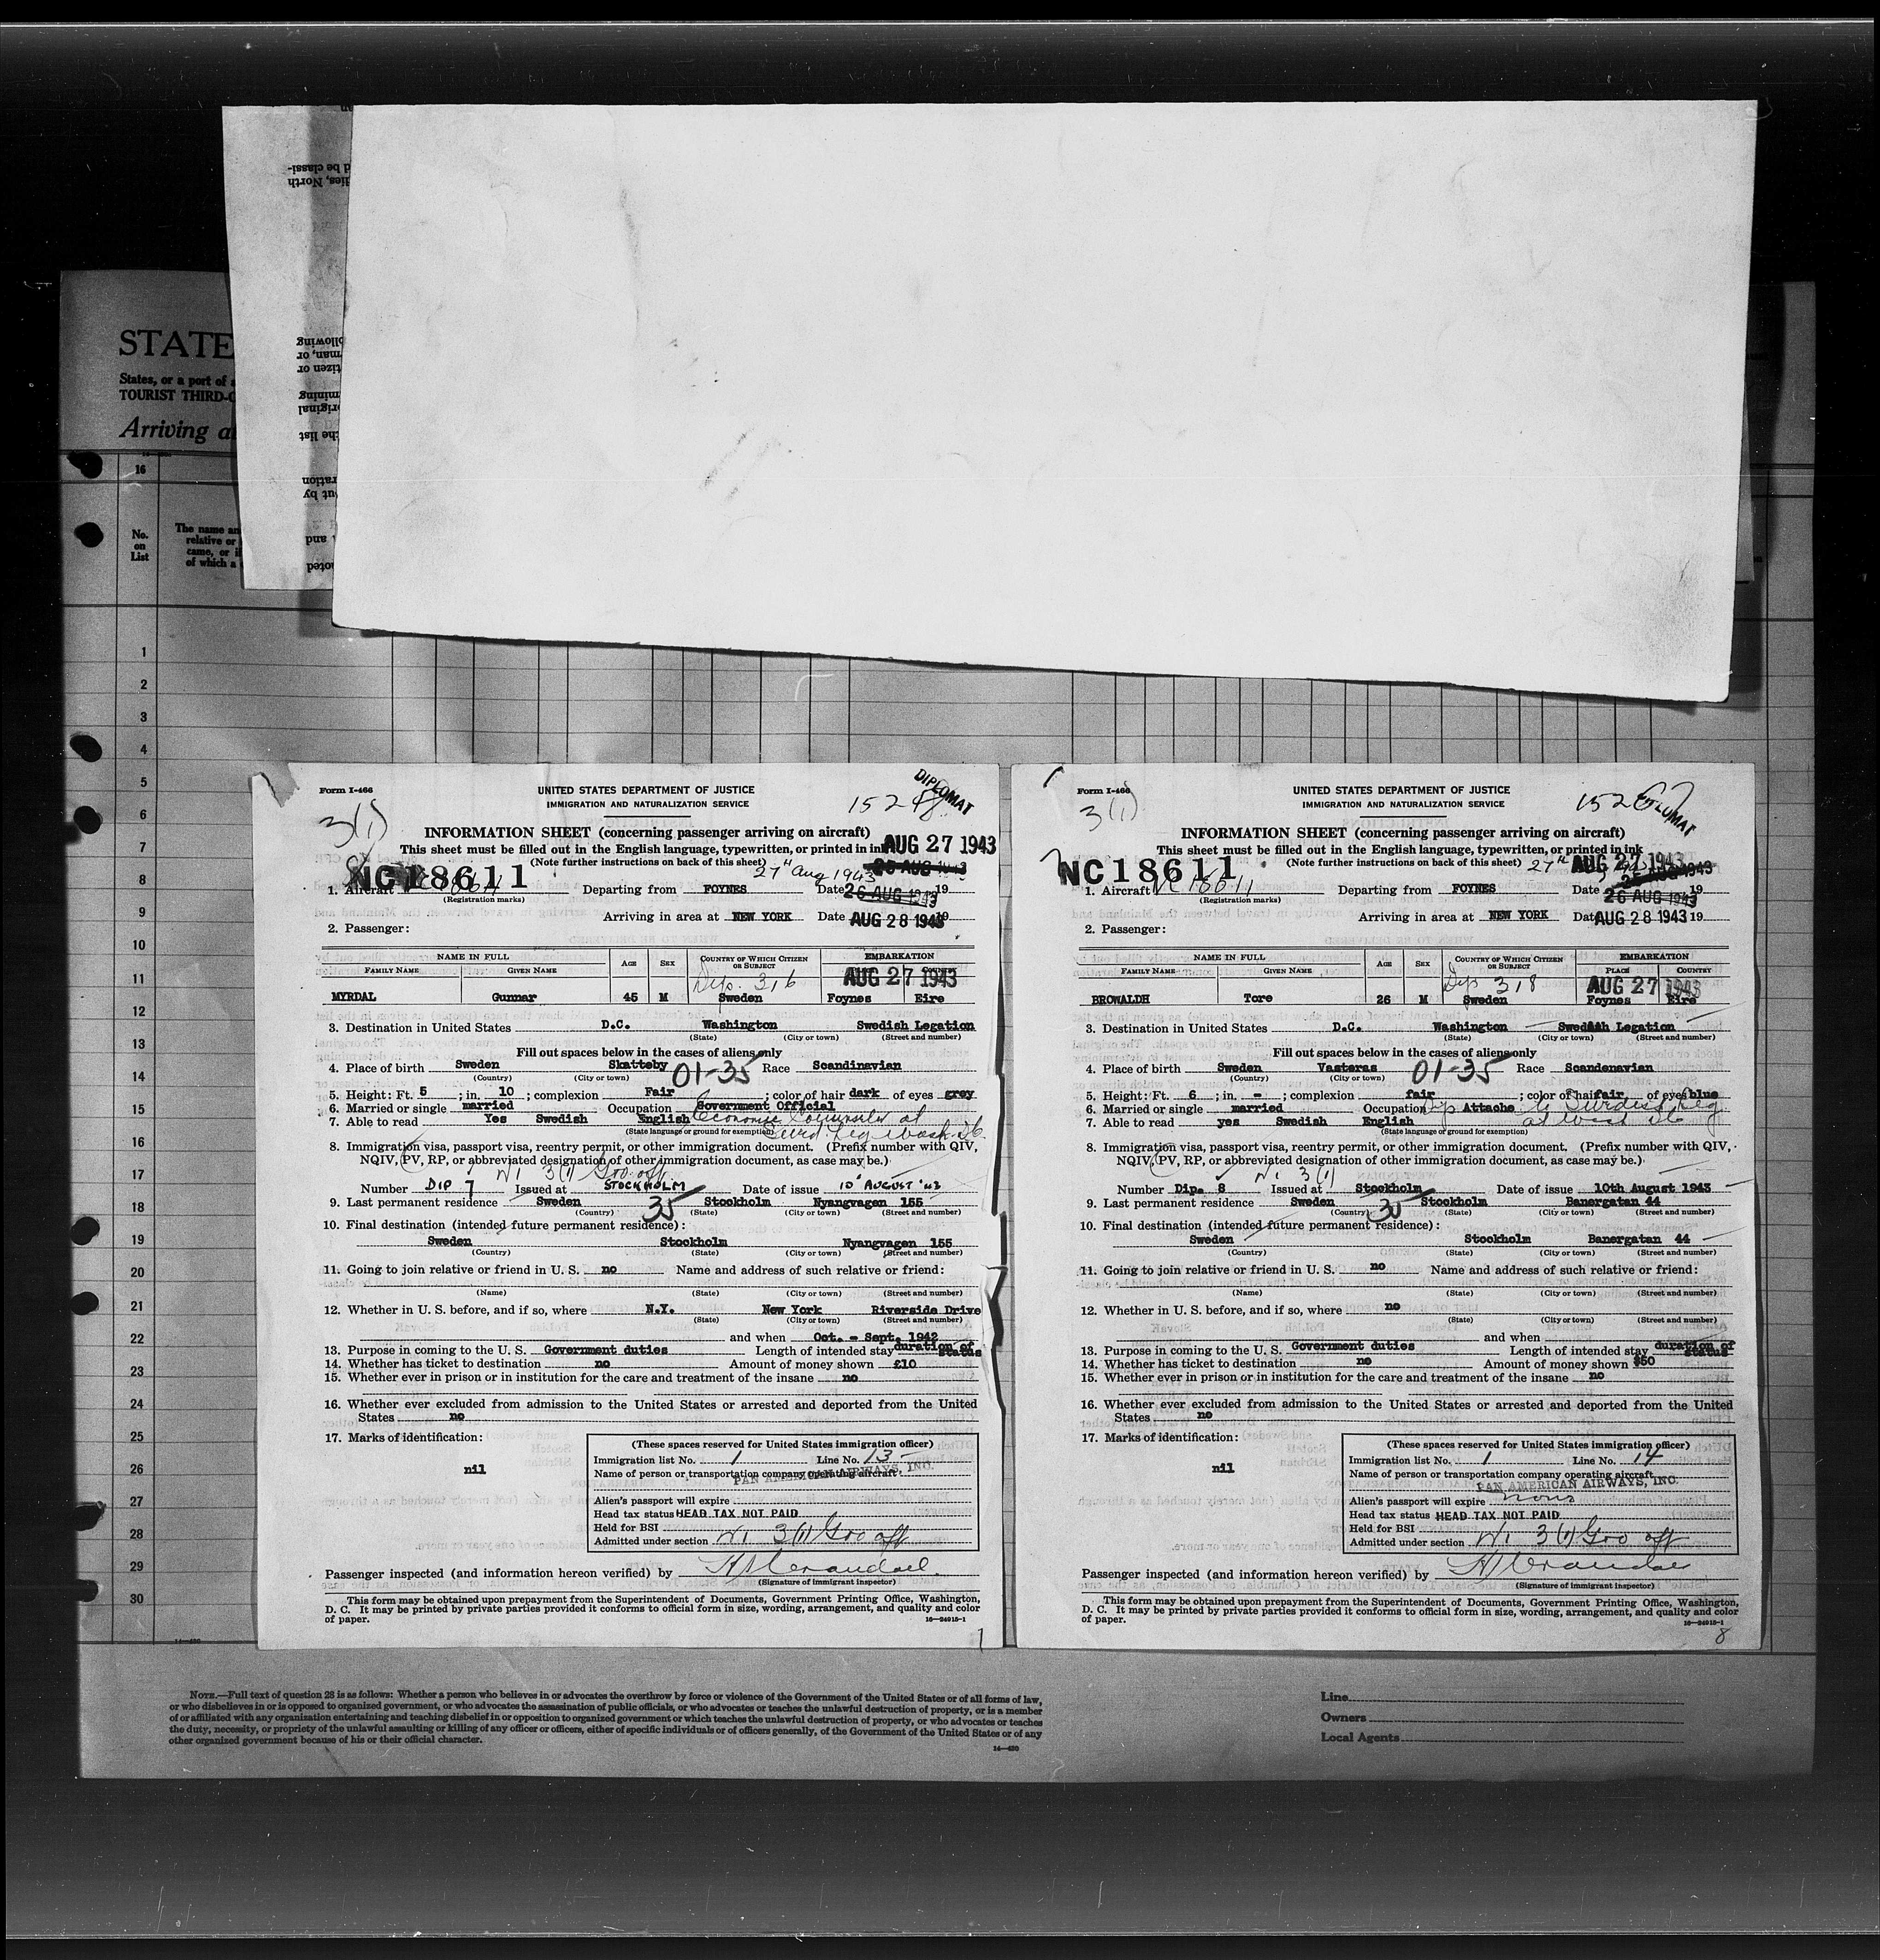 STATE
States, or a port of
TOURIST THIRD-C
Arriving a
16
No.
on
List
The name an
relative or
came, or i
of which a
d be classi-
dies, North
llowing
man, or
tizen or
mining
original
the list
ration
out by
and
noted
1
2
3
4
5
6
7
8
9
10
11
12
13
14
15
16
17
18
19
20
21
22
23
24
25
26
27
28
29
30
Form I-466
UNITED STATES DEPARTMENT OF JUSTICE
IMMIGRATION AND NATURALIZATION SERVICE
DIPLOMAT
3(1)
INFORMATION SHEET (concerning passenger arriving on aircraft)
This sheet must be filled out in the English language, typewritten, or printed in ink
AUG 27 1943
(Note further instructions on back of this sheet)
27th Aug 1943
26 AUG 1943
NC18611
1. Aircraft Departing from FOYNES Date 26 AUG 1943 19
(Registration marks)
Arriving in area at NEW YORK Date AUG 28 1943 19
2. Passenger:
NAME IN FULL AGE SEX COUNTRY OF WHICH CITIZEN OR SUBJECT EMBARKATION
FAMILY NAME GIVEN NAME
Dip. 316 AUG 27 1943
MYRDAL Gunnar 45 M Sweden Foynes Eire
3. Destination in United States D.C. Washington Swedish Legation
(State) (City or town) (Street and number)
Fill out spaces below in the cases of aliens only
4. Place of birth Sweden Skatteby 01-35 Race Scandinavian
(Country) (City or town)
5. Height: Ft. 5 ; in. 10 ; complexion Fair ; color of hair dark of eyes grey
6. Married or single married Occupation Government Official
Economic Counselor at
7. Able to read Yes Swedish English
(State language or ground for exemption)
8. Immigration visa, passport visa, reentry permit, or other immigration document. (Prefix number with QIV,
NQIV, PV, RP, or abbreviated designation of other immigration document, as case may be.)
3(1) Gov. off.
Number DIP 7 Issued at STOCKHOLM Date of issue 10 AUGUST '43
9. Last permanent residence Sweden 35 Stockholm Nyangvagen 155
(Country) (State) (City or town) (Street and number)
10. Final destination (intended future permanent residence):
Sweden Stockholm Nyangvagen 155
(Country) (State) (City or town) (Street and number)
11. Going to join relative or friend in U. S. no Name and address of such relative or friend:
(Name) (State) (City or town) (Street and number)
12. Whether in U. S. before, and if so, where N.Y. New York Riverside Drive
(State) (City or town) (Street and number)
and when Oct. - Sept. 1942
13. Purpose in coming to the U. S. Government duties Length of intended stay duration of status
14. Whether has ticket to destination no Amount of money shown £10
15. Whether ever in prison or in institution for the care and treatment of the insane no
16. Whether ever excluded from admission to the United States or arrested and deported from the United
States no
17. Marks of identification:
nil
(These spaces reserved for United States immigration officer)
Immigration list No. 1 Line No. 13
Name of person or transportation company operating aircraft,
PAN AMERICAN AIRWAYS, INC.
Alien's passport will expire
Head tax status HEAD TAX NOT PAID
Held for BSI
Admitted under section 3(1) Gov off
Passenger inspected (and information hereon verified) by
(Signature of immigrant inspector)
This form may be obtained upon prepayment from the Superintendent of Documents, Government Printing Office, Washington,
D. C. It may be printed by private parties provided it conforms to official form in size, wording, arrangement, and quality and color
of paper.
16—24915-1
7
Form I-466
UNITED STATES DEPARTMENT OF JUSTICE
IMMIGRATION AND NATURALIZATION SERVICE
3(1)
INFORMATION SHEET (concerning passenger arriving on aircraft)
This sheet must be filled out in the English language, typewritten, or printed in ink
(Note further instructions on back of this sheet) 27th AUG 27 1943
NC18611
1. Aircraft NC 18611 Departing from FOYNES Date 26 AUG 1943 19
(Registration marks)
Arriving in area at NEW YORK Date AUG 28 1943 19
2. Passenger:
NAME IN FULL AGE SEX COUNTRY OF WHICH CITIZEN OR SUBJECT EMBARKATION
FAMILY NAME GIVEN NAME PLACE COUNTRY
Dip 318 AUG 27 1943
BROWALDH Tore 26 M Sweden Foynes Eire
3. Destination in United States D.C. Washington Swedish Legation
(State) (City or town) (Street and number)
Fill out spaces below in the cases of aliens only
4. Place of birth Sweden Vasteras 01-35 Race Scandenavian
(Country) (City or town)
5. Height: Ft. 6 ; in. - ; complexion fair ; color of hair fair of eyes blue
6. Married or single married Occupation Attache
7. Able to read yes Swedish English
(State language or ground for exemption)
8. Immigration visa, passport visa, reentry permit, or other immigration document. (Prefix number with QIV,
NQIV, PV, RP, or abbreviated designation of other immigration document, as case may be.)
3(1)
Number Dip. 8 Issued at Stockholm Date of issue 10th August 1943
9. Last permanent residence Sweden 35 Stockholm Banergatan 44
(Country) (State) (City or town) (Street and number)
10. Final destination (intended future permanent residence):
Sweden Stockholm Banergatan 44
(Country) (State) (City or town) (Street and number)
11. Going to join relative or friend in U. S. no Name and address of such relative or friend:
(Name) (State) (City or town) (Street and number)
12. Whether in U. S. before, and if so, where no
(State) (City or town) (Street and number)
and when
13. Purpose in coming to the U. S. Government duties Length of intended stay duration of status
14. Whether has ticket to destination no Amount of money shown $50
15. Whether ever in prison or in institution for the care and treatment of the insane no
16. Whether ever excluded from admission to the United States or arrested and deported from the United
States no
17. Marks of identification:
nil
(These spaces reserved for United States immigration officer)
Immigration list No. 1 Line No. 14
Name of person or transportation company operating aircraft,
PAN AMERICAN AIRWAYS, INC.
Alien's passport will expire none
Head tax status HEAD TAX NOT PAID
Held for BSI
Admitted under section 3(1) Gov off
Passenger inspected (and information hereon verified) by
(Signature of immigrant inspector)
This form may be obtained upon prepayment from the Superintendent of Documents, Government Printing Office, Washington,
D. C. It may be printed by private parties provided it conforms to official form in size, wording, arrangement, and quality and color
of paper.
16—24915-1
8
NOTE.—Full text of question 28 is as follows: Whether a person who believes in or advocates the overthrow by force or violence of the Government of the United States or of all forms of law,
or who disbelieves in or is opposed to organized government, or who advocates the assassination of public officials, or who advocates or teaches the unlawful destruction of property, or is a member
of or affiliated with any organization entertaining and teaching disbelief in or opposition to organized government or which teaches the unlawful destruction of property, or who advocates or teaches
the duty, necessity, or propriety of the unlawful assaulting or killing of any officer or officers, either of specific individuals or of officers generally, of the Government of the United States or of any
other organized government because of his or their official character.
14—430
Line
Owners
Local Agents